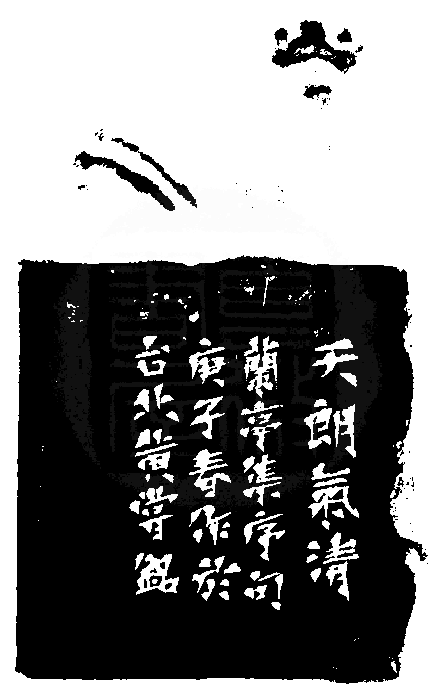 天朗氣清
蘭亭集序句
庚子春作於
台北黃嘗銘